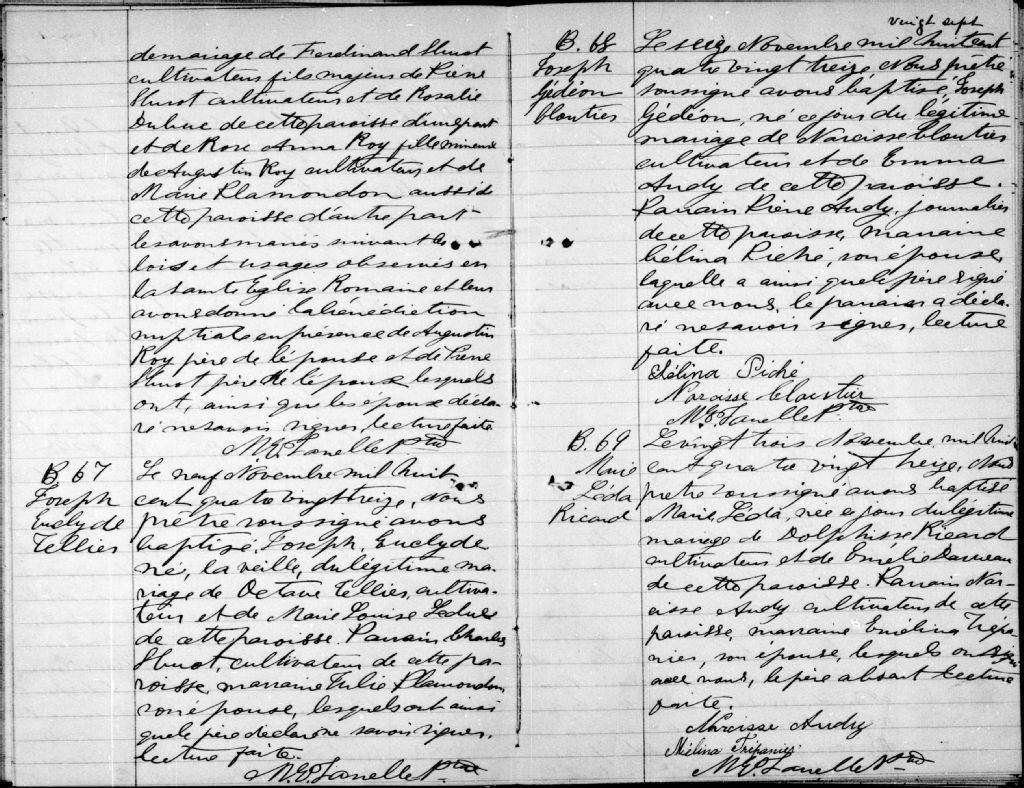 de mariage de Ferdinand Huot
cultivateur fils majeur de Pierre
Huot cultivateur et de Rosalie
Dubuc de cette paroisse d'une part
et de Rose Anna Roy fille mineure
de Augustin Roy cultivateur et de
Marie Plamondon aussi de
cette paroisse d'autre part
les avons mariés suivant les
lois et usages observés en
la Sainte Eglise Romaine et leur
avons donné la bénédiction
nuptiale en présence de Augustin
Roy père de l'épouse et de Pierre
Huot père de l'époux lesquels
ont, ainsi que les époux décla-
ré ne savoir signer, lecture faite
M. E. Lanelle Ptre
B. 67
Joseph
Euclyde
Tellier
Le neuf Novembre mil huit
cent quatre vingt treize, Nous
prêtre soussigné avons
baptisé, Joseph, Euclyde
né, la veille, du légitime ma-
riage de Octave Tellier, cultiva-
teur et de Marie Louise Leduc
de cette paroisse. Parrain Charles
Huot, cultivateur de cette pa-
roisse, marraine Julie Plamondon,
son épouse, lesquels ont ainsi
que le père déclaré ne savoir signer,
lecture faite.
M. E. Lanelle Ptre
vingt sept
B. 68
Joseph
Gédéon
Cloutier
Le seize Novembre mil huit cent
quatre vingt treize Nous prêtre
soussigné avons baptisé, Joseph
Gédéon, né ce jour du légitime
mariage de Narcisse Cloutier
cultivateur et de Emma
Audy de cette paroisse.
Parrain Pierre Audy, journalier
de cette paroisse, marraine
Célina Piché, son épouse,
laquelle a ainsi que le père signé
avec nous, le parrain a décla-
ré ne savoir signer, lecture
faite.
Célina Piché
Narcisse Cloutier
M. E. Lanelle Ptre
B. 69
Marie
Léda
Ricard
Le vingt trois Novembre, mil huit
cent quatre vingt treize, Nous
prêtre soussigné avons baptisé
Marie, Léda, née ce jour du légitime
mariage de Dolphisse Ricard
cultivateur et de Emélie
de cette paroisse. Parrain Nar-
cisse Audy cultivateur de cette
paroisse, marraine Emélina Trépa-
nier, son épouse, lesquels ont signé
avec nous, le père absent lecture
faite.
Narcisse Audy
Mélina Trépanier
M. E. Lanelle Ptre